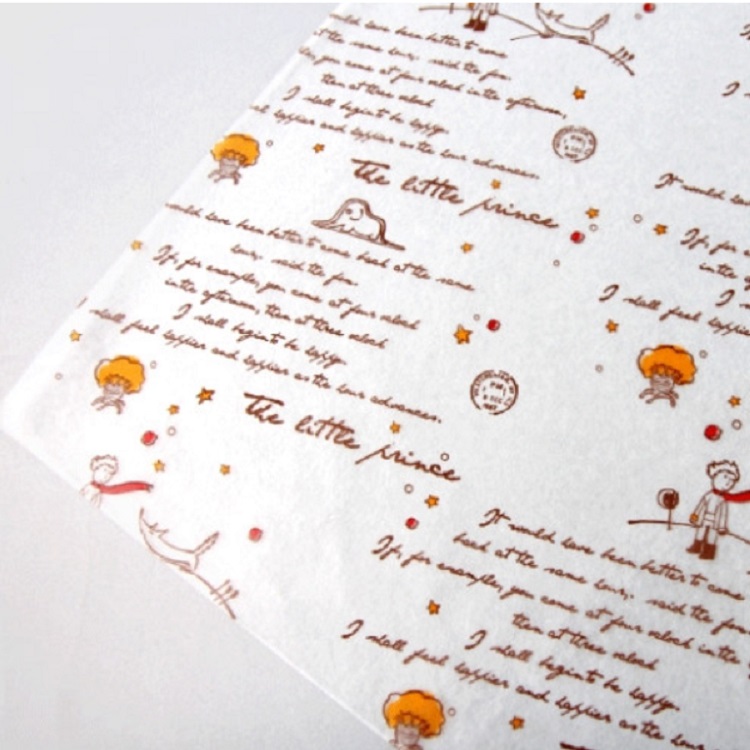 would have been better to come
at the same hour, said the fox.
for example, you come at four o'clock in the afternoon,
then at three o'clock
I shall begin to be happy.
happier and happier as the hour advances.
The little prince
would have been better to come back at the same
hour, said the fox.
If, for example, you come at four o'clock
in the afternoon, then at three o'clock
I shall begin to be happy.
I shall feel happier and happier as the hour advances.
The little prince
It would have
If, for
in the
I
I shall feel happier
It would have been better to come
back at the same hour, said the fox.
If, for example, you come at four o'clock in the
then at three o'clock
I shall begin to be happy.
I shall feel happier and happier as the hour